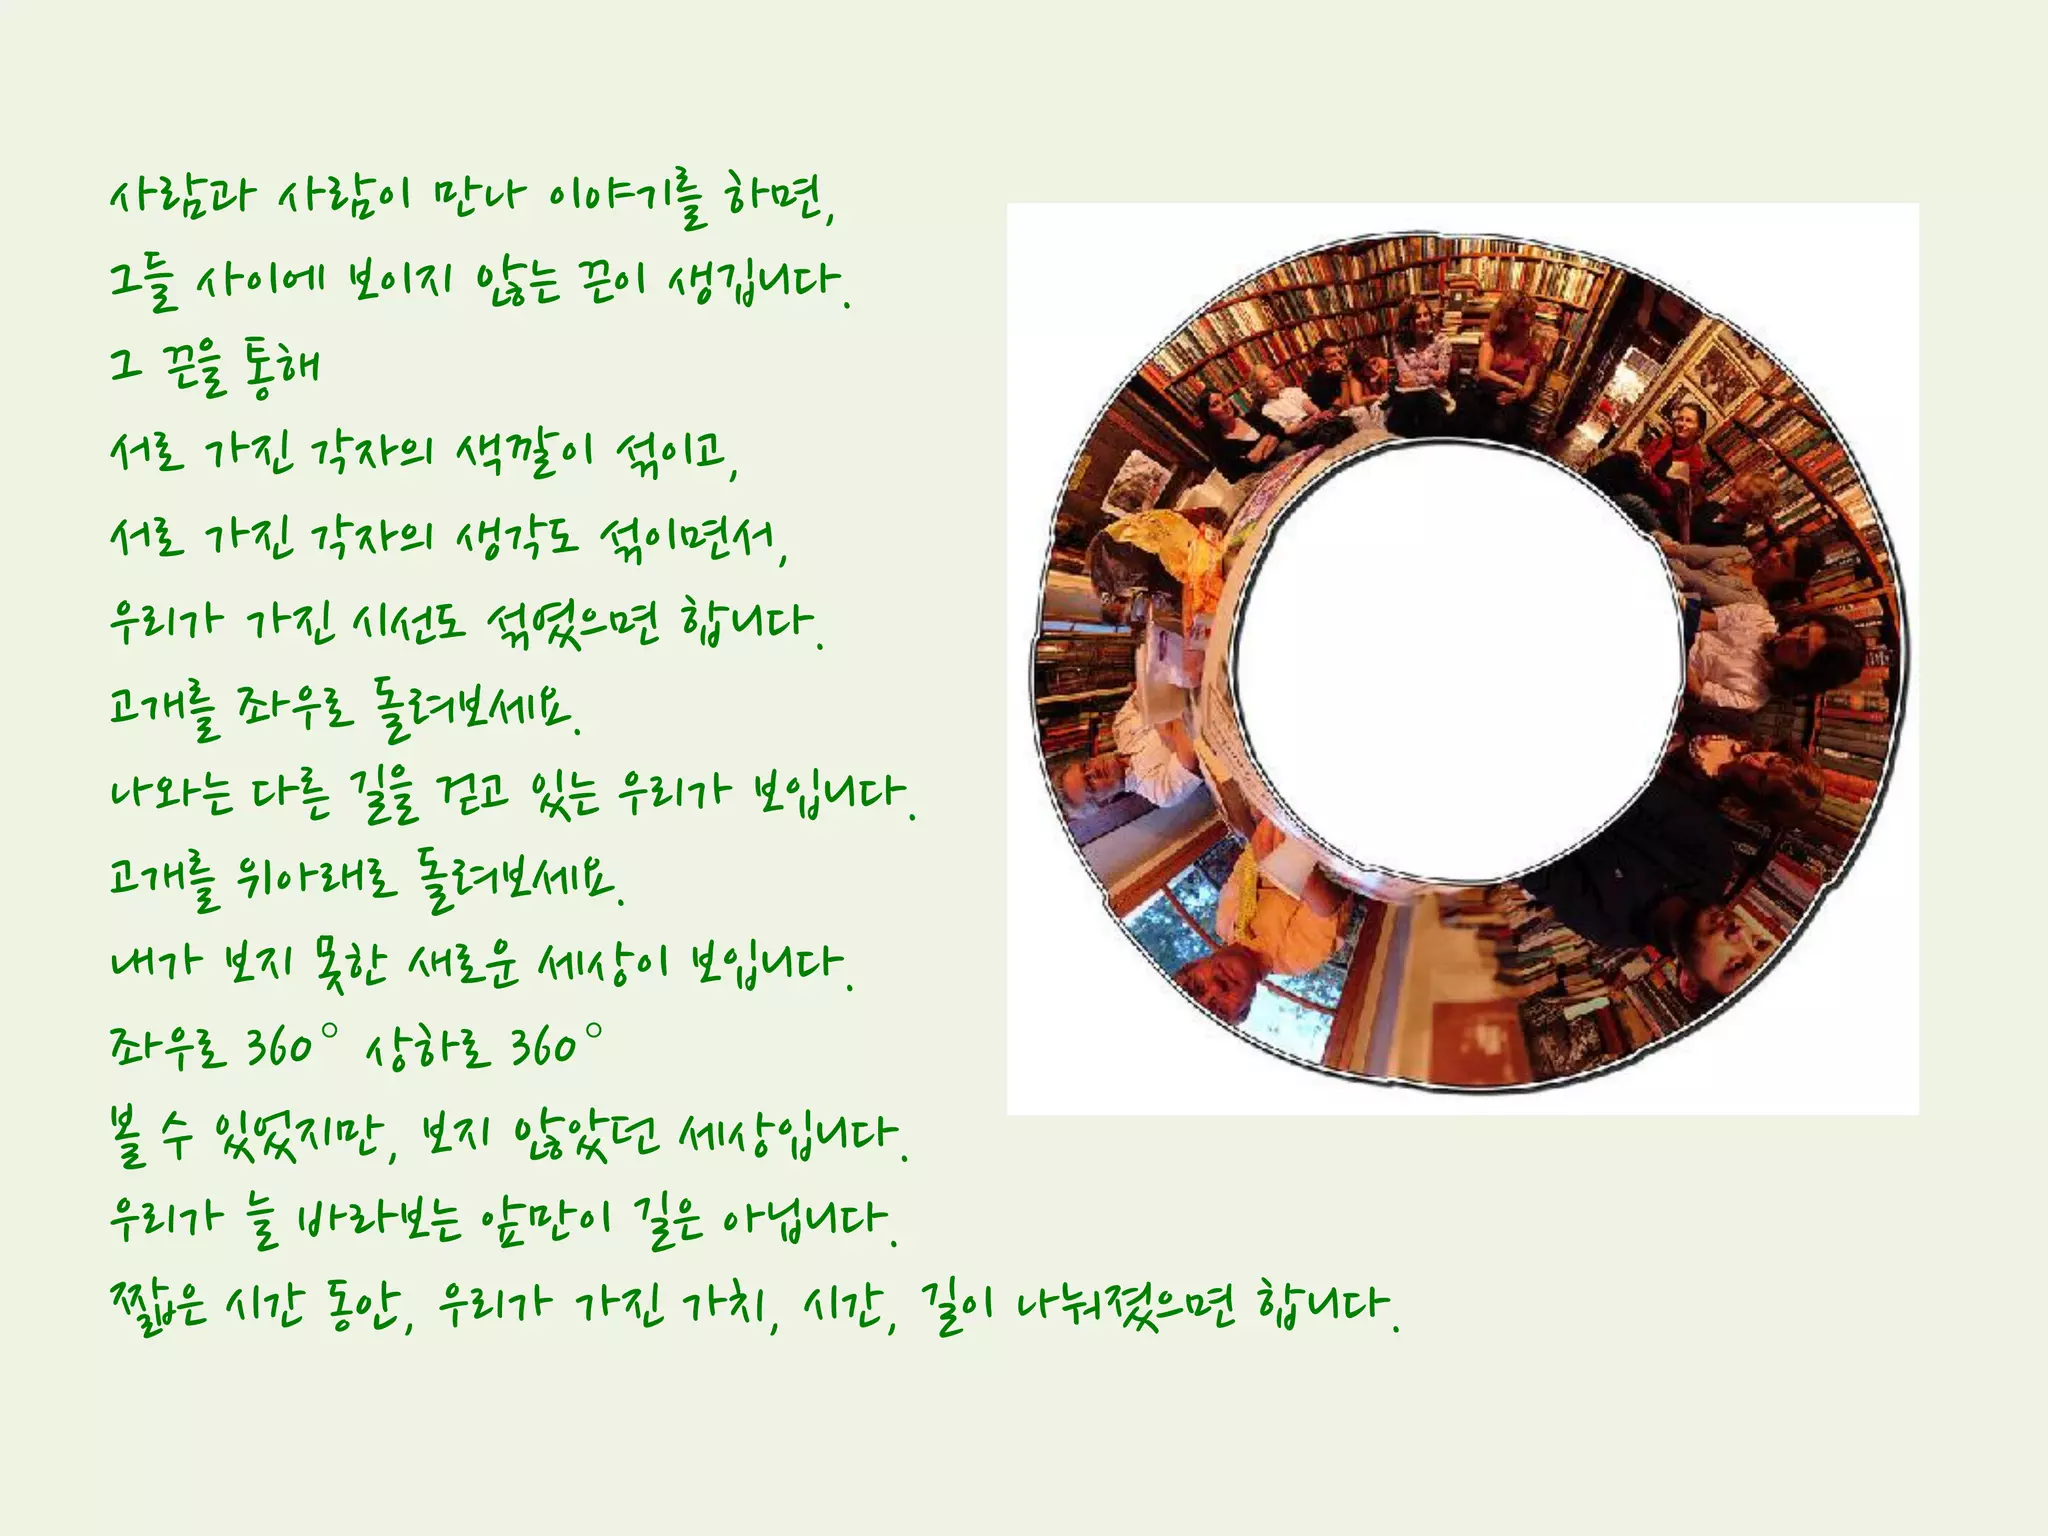 사람과 사람이 만나 이야기를 하면,
그들 사이에 보이지 않는 끈이 생깁니다.
그 끈을 통해
서로 가진 각자의 색깔이 섞이고,
서로 가진 각자의 생각도 섞이면서,
우리가 가진 시선도 섞였으면 합니다.
고개를 좌우로 돌려보세요.
나와는 다른 길을 걷고 있는 우리가 보입니다.
고개를 위아래로 돌려보세요.
내가 보지 못한 새로운 세상이 보입니다.
좌우로 360° 상하로 360°
볼 수 있었지만, 보지 않았던 세상입니다.
우리가 늘 바라보는 앞만이 길은 아닙니다.
짧은 시간 동안, 우리가 가진 가치, 시간, 길이 나눠졌으면 합니다.